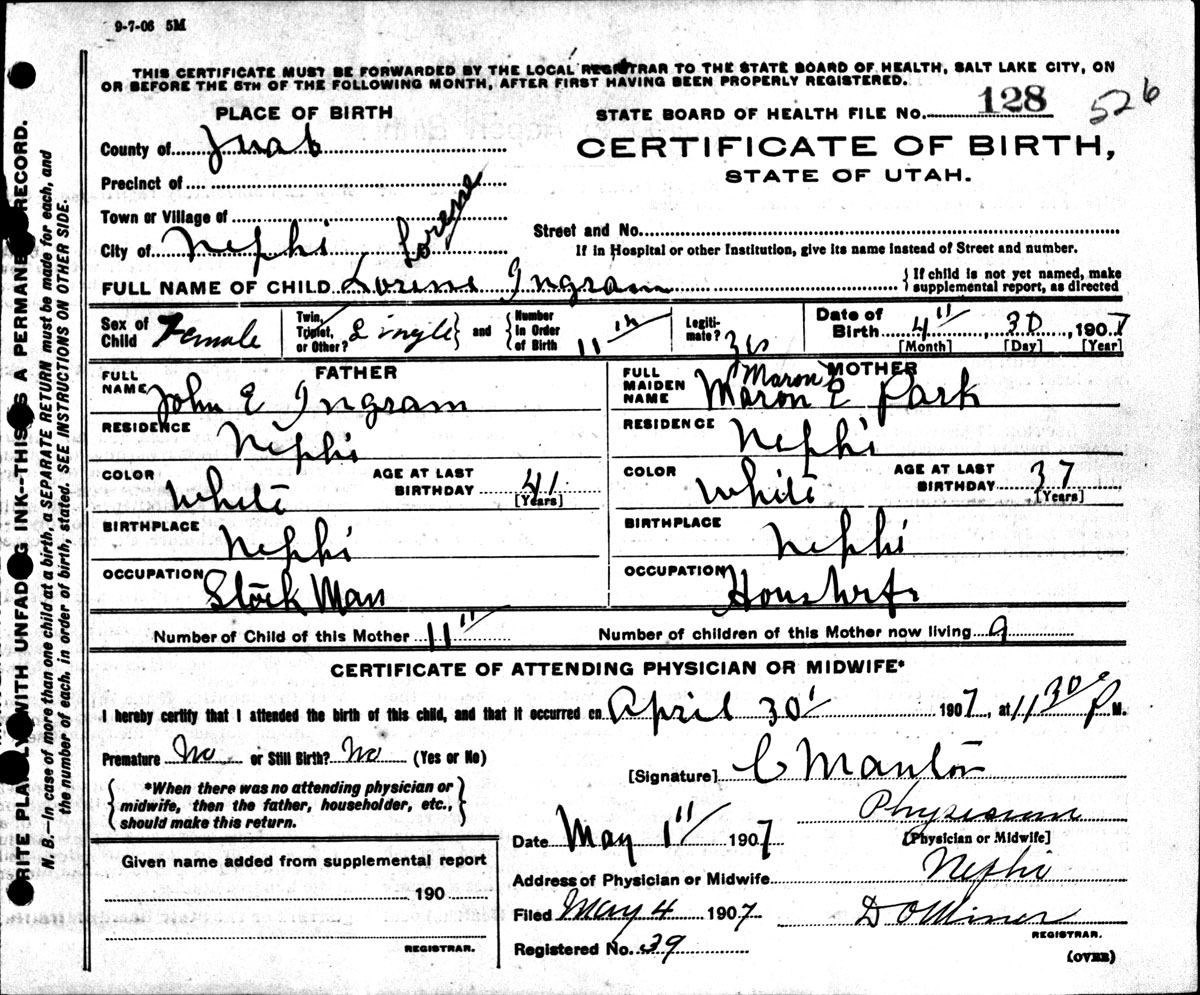 9-7-06 5M
THIS CERTIFICATE MUST BE FORWARDED BY THE LOCAL REGISTRAR TO THE STATE BOARD OF HEALTH, SALT LAKE CITY, ON
OR BEFORE THE 5TH OF THE FOLLOWING MONTH, AFTER FIRST HAVING BEEN PROPERLY REGISTERED.
PLACE OF BIRTH
STATE BOARD OF HEALTH FILE NO. 128 526
County of Juab
CERTIFICATE OF BIRTH,
STATE OF UTAH.
Precinct of
Town or Village of
Lorene
City of Nephi
Street and No.
If in Hospital or other Institution, give its name instead of Street and number.
FULL NAME OF CHILD Lorene Ingram
{If child is not yet named, make
supplemental report, as directed
Sex of Child Female
Twin, Triplet, or Other? Single} and {Number In Order of Birth 11th
Legitimate? Yes
Date of Birth 4", 30, 1907
[Month] [Day] [Year]
FATHER
FULL NAME John E Ingram
RESIDENCE Nephi
COLOR White
AGE AT LAST BIRTHDAY 41
[Years]
BIRTHPLACE Nephi
OCCUPATION Stock Man
MOTHER
Maron
FULL MAIDEN NAME Maron E Park
RESIDENCE Nephi
COLOR White
AGE AT LAST BIRTHDAY 37
[Years]
BIRTHPLACE Nephi
OCCUPATION Houswife
Number of Child of this Mother 11"
Number of children of this Mother now living 9
CERTIFICATE OF ATTENDING PHYSICIAN OR MIDWIFE*
I hereby certify that I attended the birth of this child, and that it occurred on April 30' 1907, at 11 30 P M.
Premature No or Still Birth? No (Yes or No)
[Signature] C Manton
{*When there was no attending physician or
midwife, then the father, householder, etc.,
should make this return.}
Physician
[Physician or Midwife]
Date May 1" 1907
Address of Physician or Midwife Nephi
Filed May 4 1907
D O Miner
REGISTRAR.
Registered No. 39
(OVER)
Given name added from supplemental report
190
REGISTRAR.
RITE PLAINLY WITH UNFADING INK--THIS IS A PERMANENT RECORD.
N. B.—In case of more than one child at a birth, a SEPARATE RETURN must be made for each, and
the number of each, in order of birth, stated. SEE INSTRUCTIONS ON OTHER SIDE.